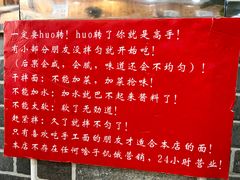 一定要huo转！huo转了你就是高手！
有小部分朋友没拌匀就开始吃！
（后果会咸，会腻，味道还会不均匀）！
干拌面：不能加菜，加菜抢味！
不能加水：加水就巴不起来酱料了！
不能太软：软了无劲道！
趁紧拌：久了就拌不匀了！
只有喜欢吃手工面的朋友才适合本店的面！
本店不存在任何啥子饥饿营销，24小时营业！